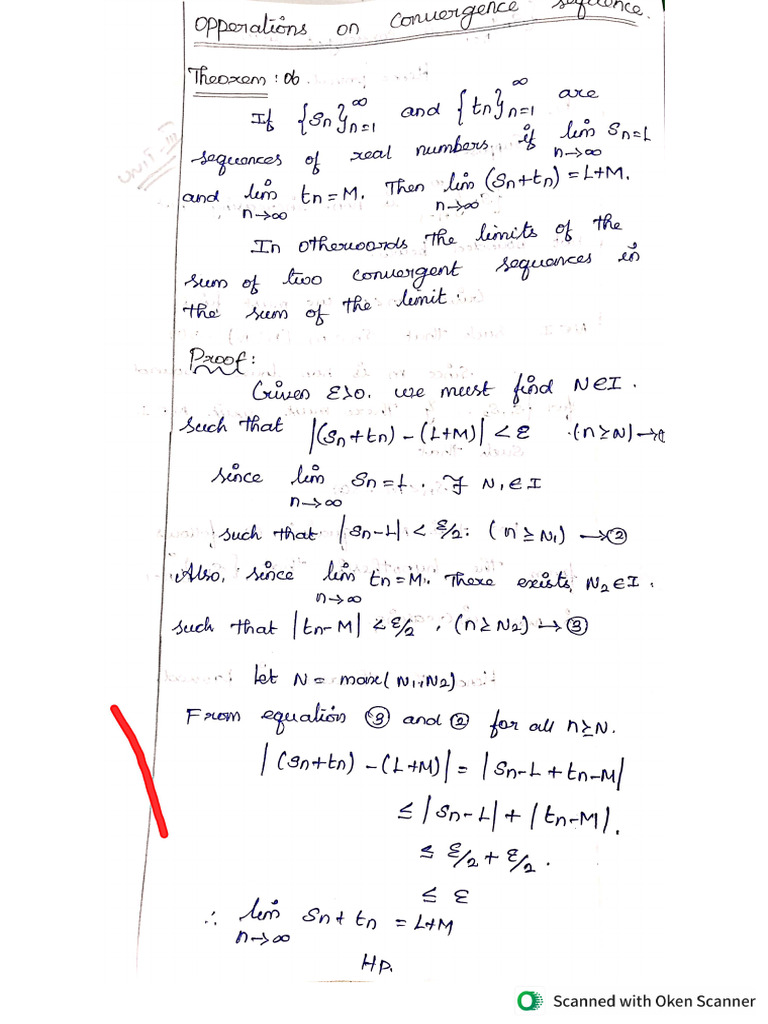 Opperations on Convergence sequence.
Theorem : 06
If {Sn}∞n=1 and {tn}∞n=1 are
sequences of real numbers. if lim n→∞ Sn=L
and lim n→∞ tn = M. Then lim n→∞ (Sn+tn) = L+M.
UNIT-III
In otherwoards the limits of the
sum of two convergent sequences in
the sum of the limit.
Proof :
Given ε>0. we must find N∈I.
such that |(Sn+tn) - (L+M)| < ε (n≥N) →
since lim n→∞ Sn = L. ∃ N1∈I
such that |Sn-L| < ε/2. (n ≥ N1) → ②
Also, since lim n→∞ tn = M. There exists N2∈I.
such that |tn-M| < ε/2, (n ≥ N2) → ③
let N = max(N1, N2)
From equation ③ and ② for all n≥N.
|(Sn+tn) - (L+M)| = |Sn-L + tn-M|
≤ |Sn-L| + |tn-M|.
≤ ε/2 + ε/2.
≤ ε
∴ lim n→∞ Sn + tn = L+M
HP.
Scanned with Oken Scanner